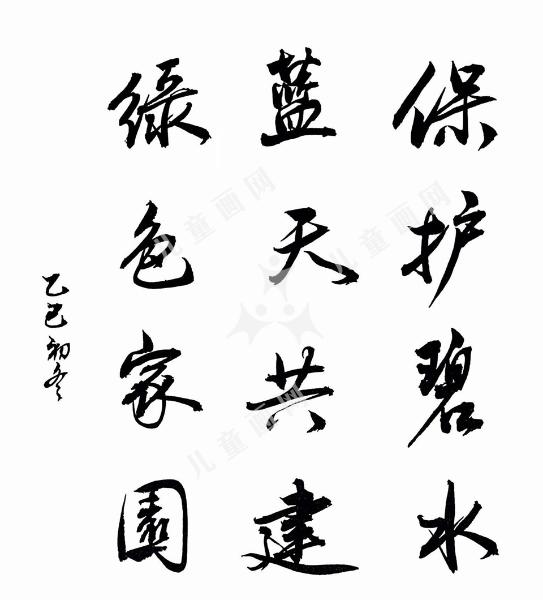 保护碧水
蓝天共建
綠色家園
乙巳初冬
儿童画网
儿童画网
儿童画网